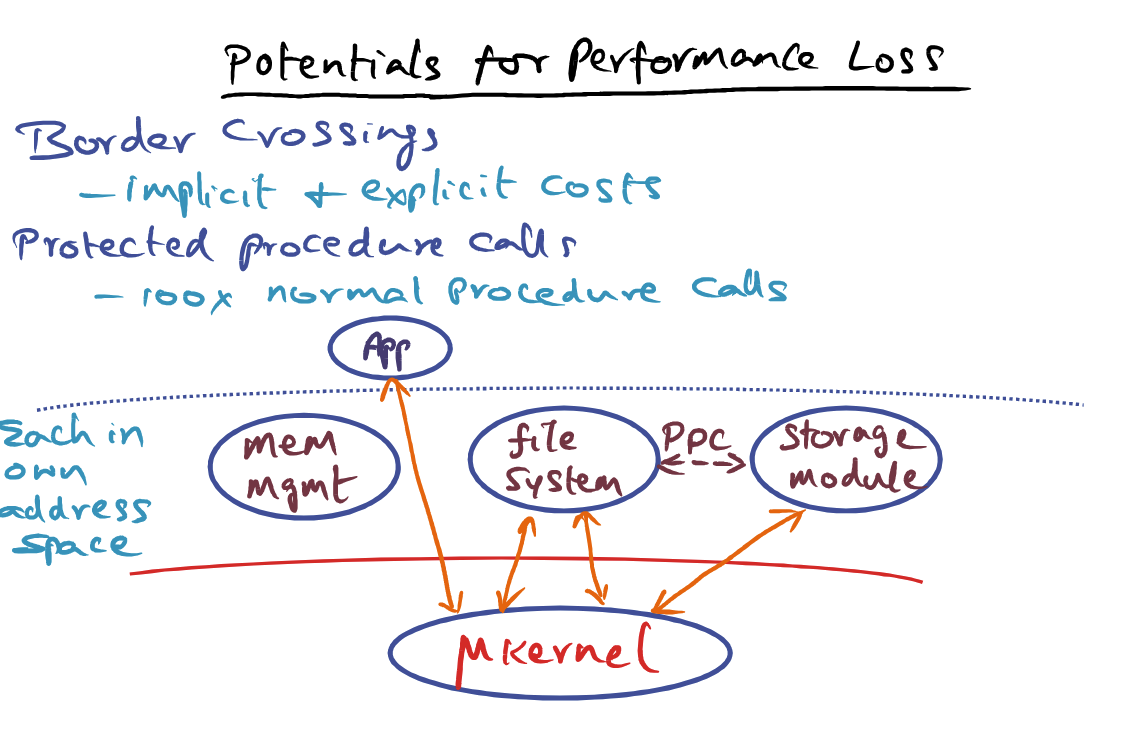 Potentials for Performance Loss
Border Crossings
- implicit + explicit costs
Protected procedure calls
- 100x normal procedure calls
App
Each in
own
address
space
mem
mgmt
file
system
PPC
storage
module
μkernel